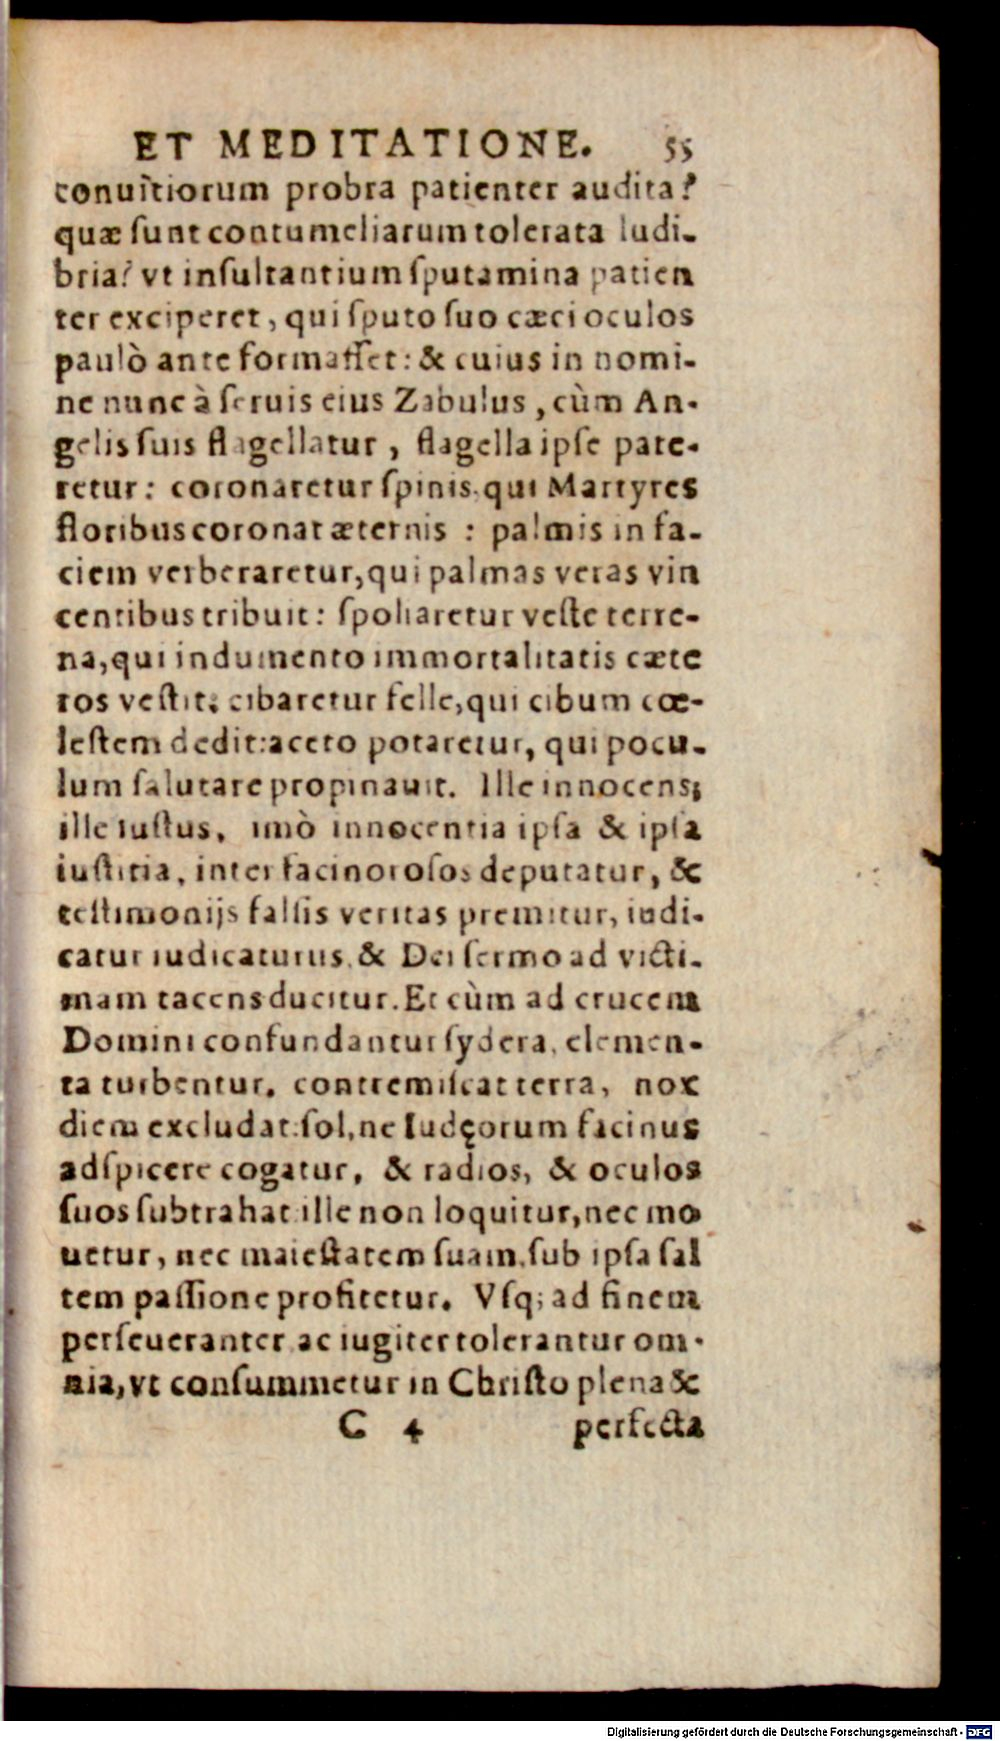 ET MEDITATIONE. 55
conuitiorum probra patienter audita?
quæ ſunt contumeliarum tolerata ludi-
bria? vt inſultantium ſputamina patien
ter exciperet, qui ſputo ſuo cæci oculos
paulò ante formaſſet: & cuius in nomi-
ne nunc à ſeruis eius Zabulus, cùm An-
gelis ſuis flagellatur, flagella ipſe pate-
retur: coronaretur ſpinis, qui Martyres
floribus coronat æternis : palmis in fa-
ciem verberaretur, qui palmas veras vin
centibus tribuit: ſpoliaretur veſte terre-
na, qui indumento immortalitatis cæte
ros veſtit: cibaretur felle, qui cibum cœ-
leſtem dedit: aceto potaretur, qui pocu-
lum ſalutare propinauit. Ille innocens;
ille iuſtus, imò innocentia ipſa & ipſa
iuſtitia, inter facinoroſos deputatur, &
teſtimonijs falſis veritas premitur, iudi-
catur iudicaturus, & Dei ſermo ad victi-
mam tacens ducitur. Et cùm ad crucem
Domini confundantur ſydera, elemen-
ta turbentur, contremiſcat terra, nox
diem excludat: ſol, ne Iudęorum facinus
adſpicere cogatur, & radios, & oculos
ſuos ſubtrahat ille non loquitur, nec mo
uetur, nec maieſtatem ſuam, ſub ipſa ſal
tem paſſione profitetur. Vſq; ad finem
perſeueranter ac iugiter tolerantur om-
nia, vt conſummetur in Chriſto plena &
C 4 perfecta
Digitalisierung gefördert durch die Deutsche Forschungsgemeinschaft - DFG